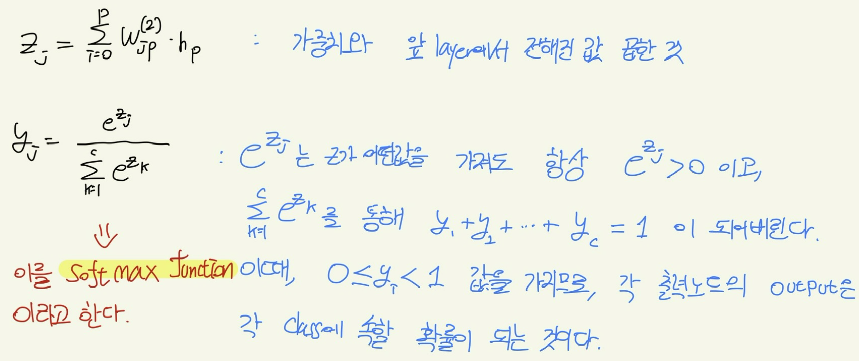 z_j = Σ_{i=0}^{P} w_{jp}^{(2)} · h_p : 가중치와 앞 layer에서 전해진 값 곱한 것
y_j = e^{z_j} / Σ_{k=1}^{c} e^{z_k} : e^{z_j}는 z가 어떤값을 가져도 항상 e^{z_j} > 0 이고,
Σ_{k=1}^{c} e^{z_k}를 통해 y_1 + y_2 + ⋯ + y_c = 1 이 되어버린다.
⇓
이를 Softmax function
이라고 한다.
이때, 0 ≤ y_i < 1 값을 가지므로, 각 출력노드의 output은
각 class에 속할 확률이 되는 것이다.